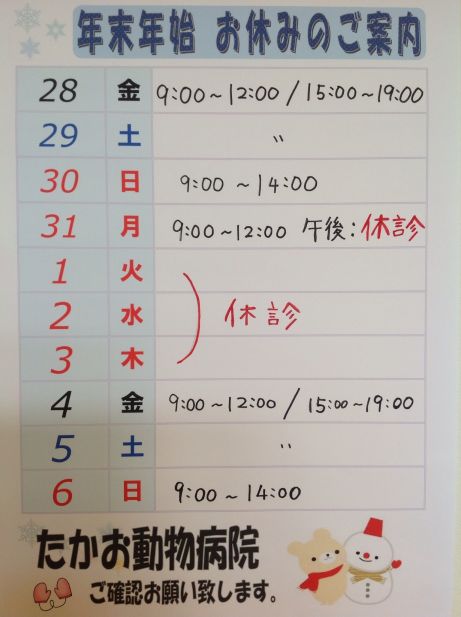 年末年始 お休みのご案内
28 金 9:00～12:00 / 15:00～19:00
29 土 〃
30 日 9:00 ～14:00
31 月 9:00～12:00 午後:休診
1 火
2 水 休診
3 木
4 金 9:00～12:00 / 15:00～19:00
5 土 〃
6 日 9:00～14:00
たかお動物病院
ご確認お願い致します。